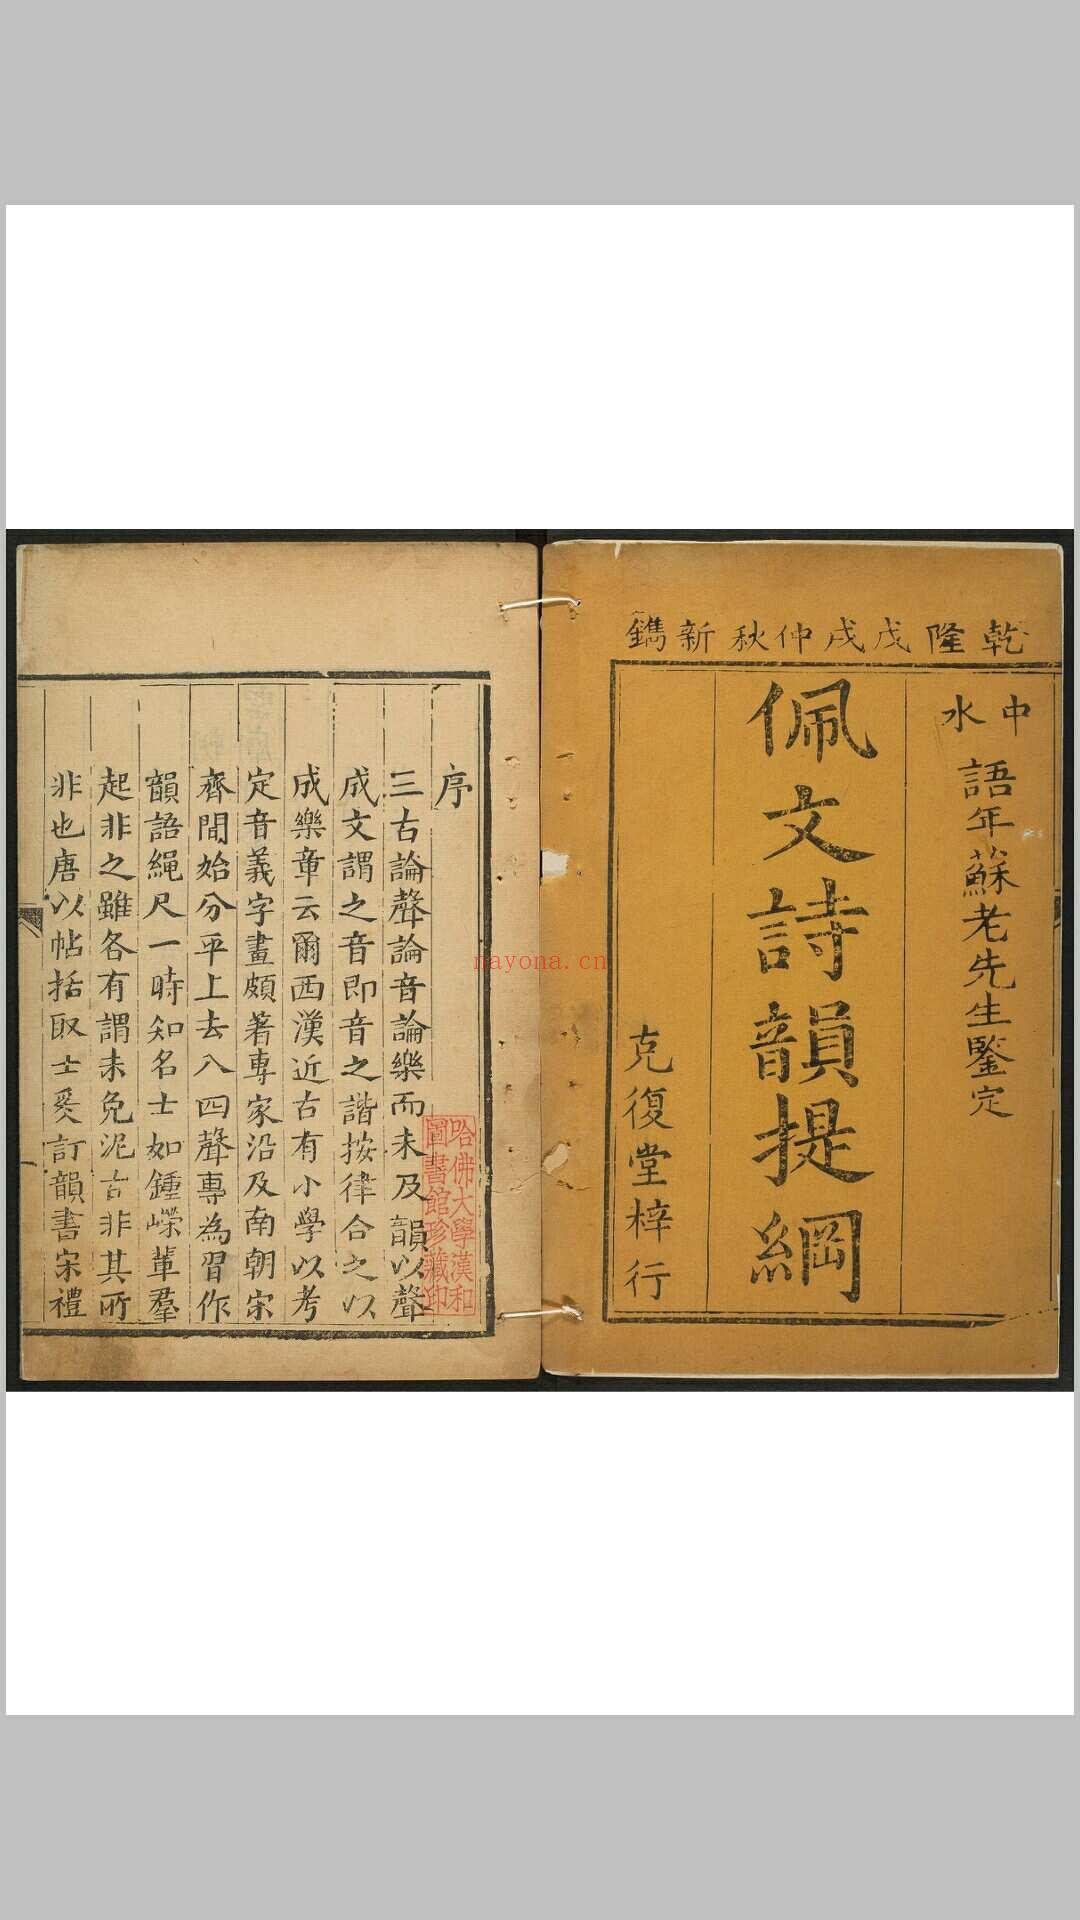 乾隆戊戌仲秋新鐫
中水
語年蘇老先生鑒定
佩文詩韻提綱
克復堂梓行
序
三古論聲論音論樂而未及韻以聲
成文謂之音即音之諧按律合之以
成樂章云爾西漢近古有小學以考
定音義字畫頗著專家沿及南朝宋
齊間始分平上去入四聲專為習作
韻語繩尺一時知名士如鍾嶸輩羣
起非之雖各有謂未免泥古非其所
非也唐以帖括取士爰訂韻書宋禮
哈佛大學漢和
圖書館珍藏印
nayona.cn